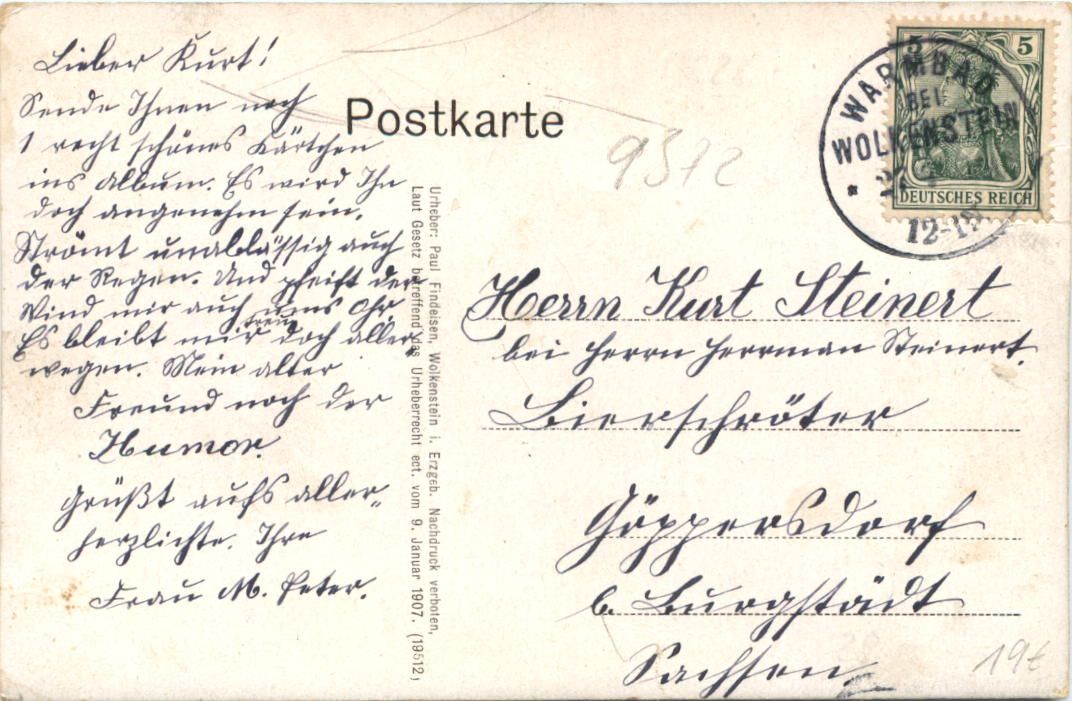 Lieber Kurt!
Sende Ihnen noch
1 recht schönes Kärtchen
ins Album. Es wird Ihn
doch angenehm sein.
Strömt unablässig auch
der Regen. Und pfeift der
Wind mir auch ums Ohr,
Es bleibt mir treu doch aller-
wegen. Mein alter
Freund noch der
Humor.
Grüßt aufs aller-
herzlichte. Ihre
Frau M. Peter.
Postkarte
9372
Urheber: Paul Findeisen, Wolkenstein i. Erzgeb. Nachdruck verboten,
Laut Gesetz betreffend das Urheberrecht ect. vom 9. Januar 1907. (19512)
5 5
DEUTSCHES REICH
WARMBAD
BEI
WOLKENSTEIN
Herrn Kurt Steinert
bei Herrn Herrman Steinert.
Bierschröter
Göppersdorf
b. Burgstädt
Sachsen
19€